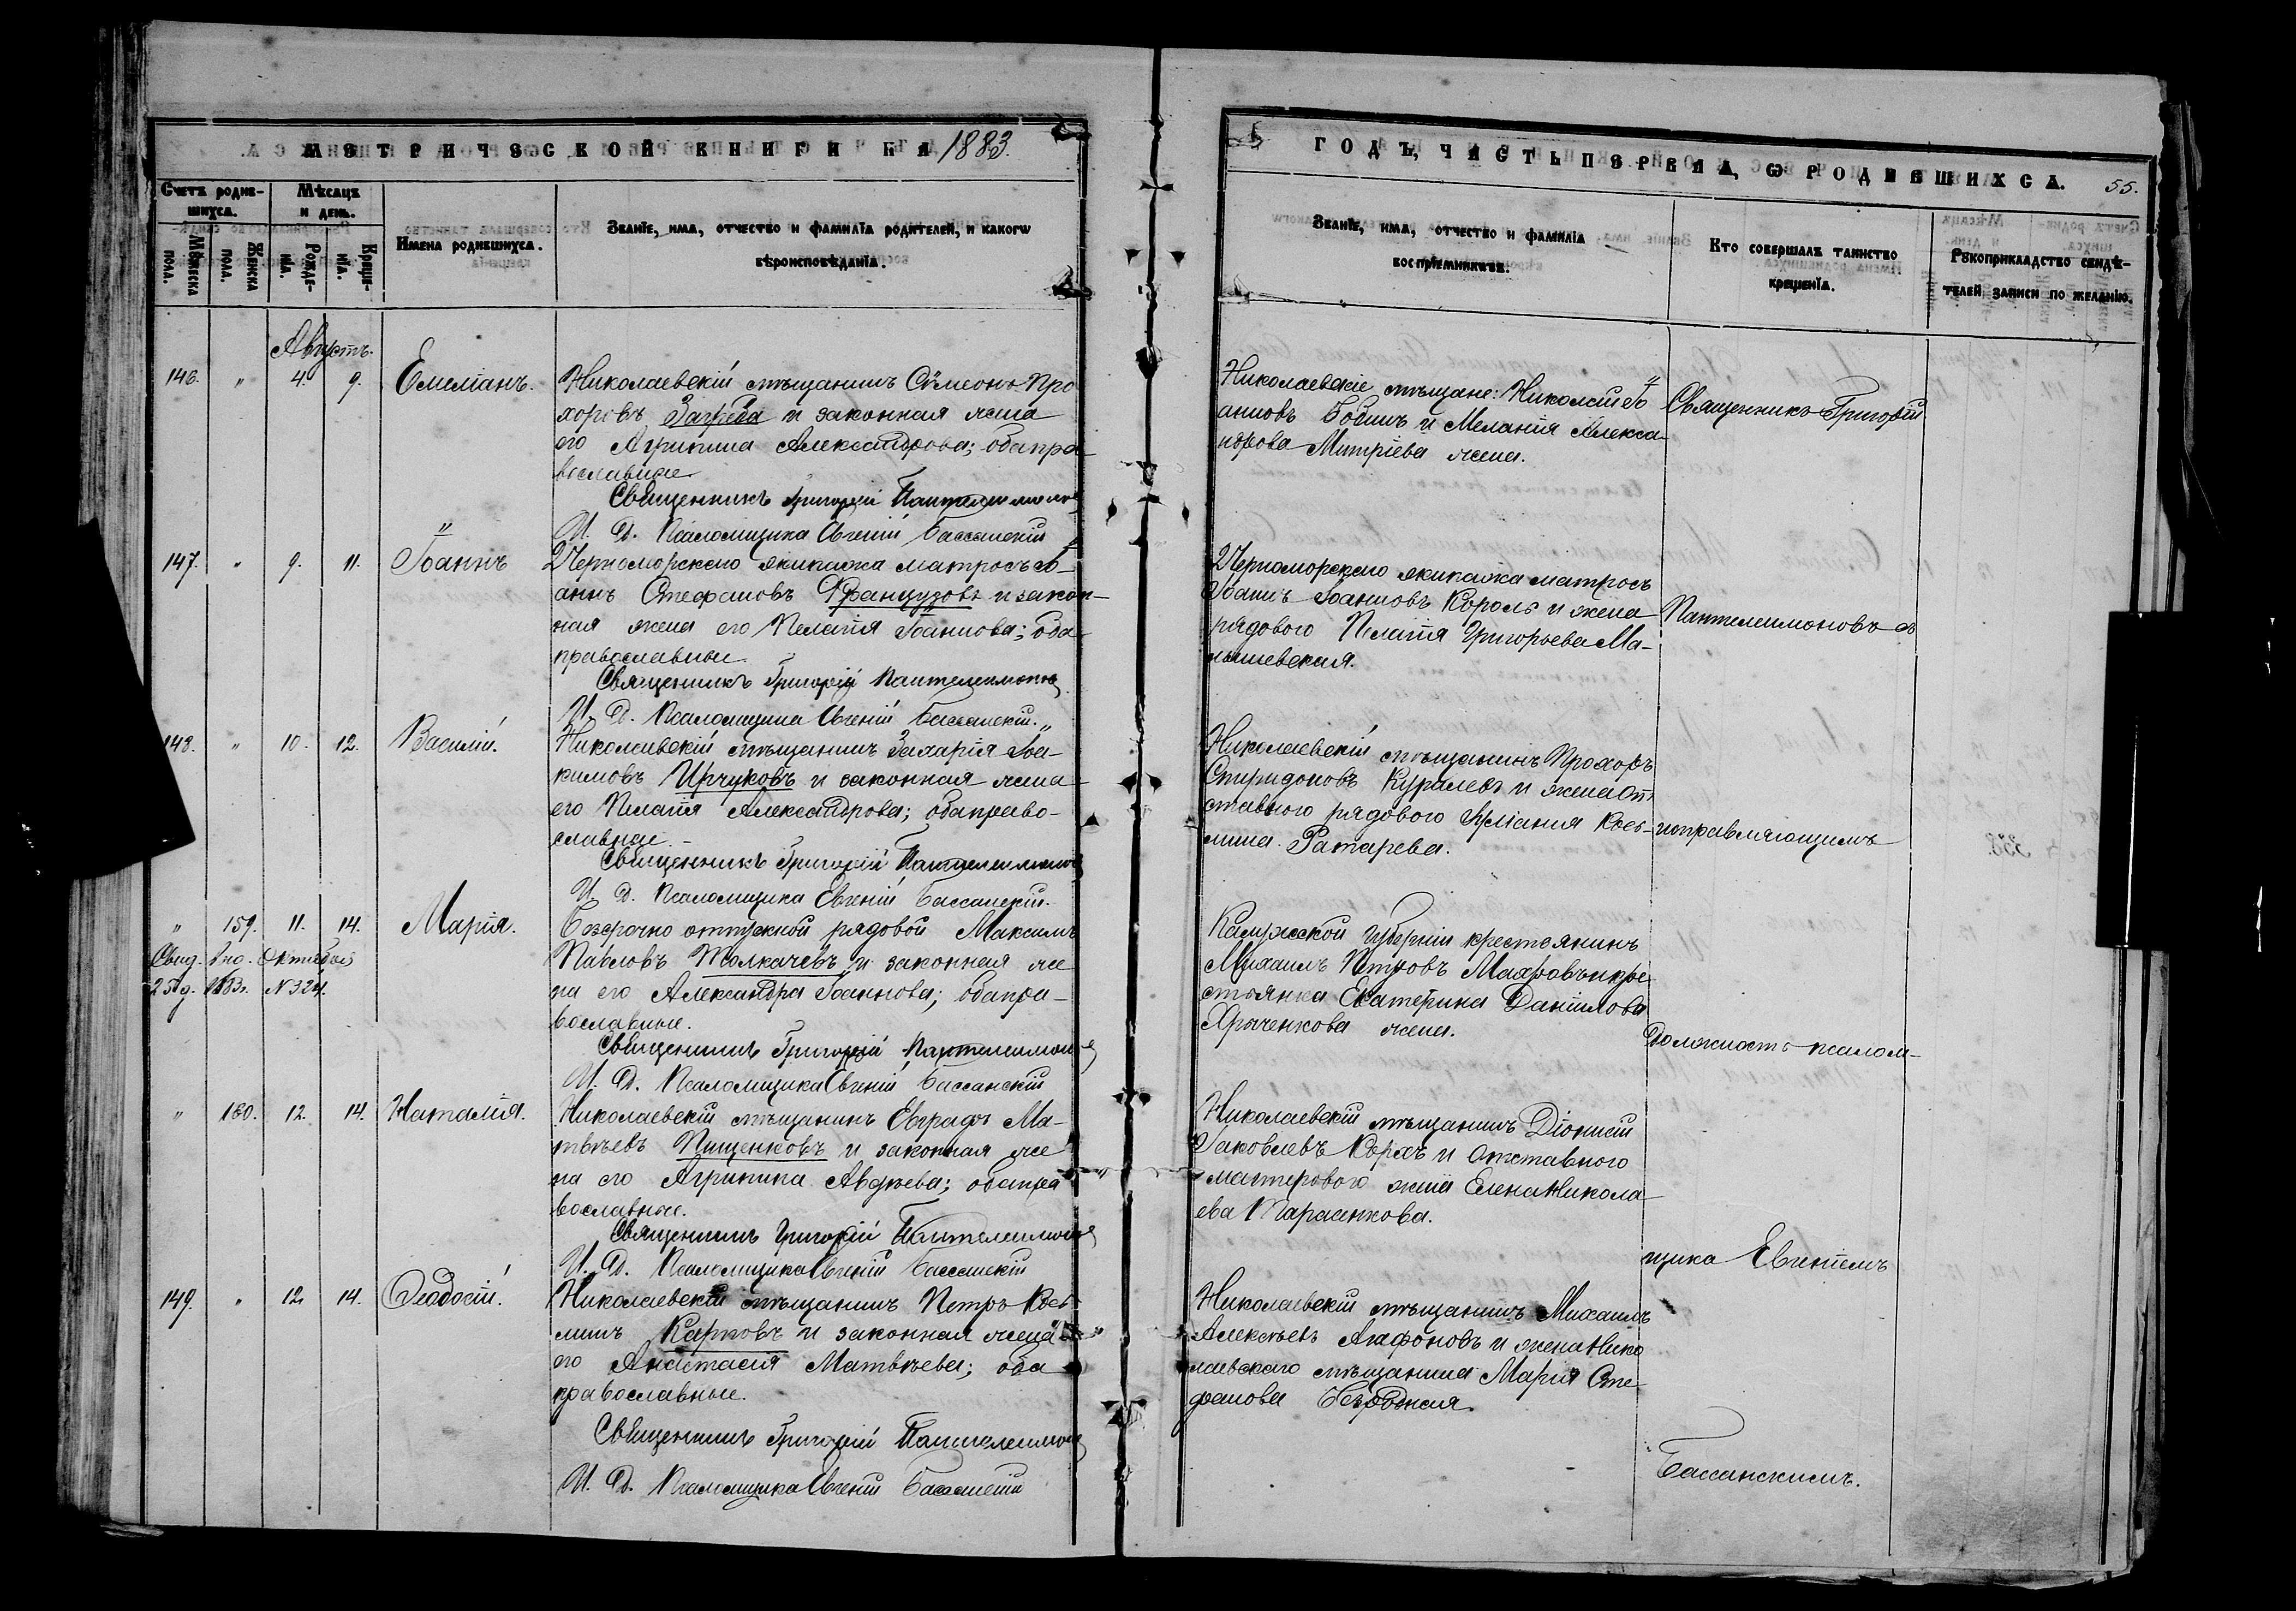 МЕТРИЧЕСКОЙ КНИГИ НА 1883.
Счетъ родив-
шихся.
Мѣсяцъ
и день.
Мужеска
пола.
Женска
пола.
Рожде-
нія.
Креще-
нія.
Имена родившихся.
Званіе, имя, отчество и фамилія родителей, и какогѡ
вѣроисповѣданія.
Августъ.
146. " 4. 9. Емеліанъ.
Николаевскій мѣщанинъ Сѵмеонъ Про
хоровъ и законная жена
его Агрипина Александрова; оба пра-
вославные
Священникъ Григорій Пантелеимоновъ
И. Д. Псаломщика Евгеній Бассанскій
147. " 9. 11. Іоаннъ
Черноморскаго экипажа матросъ Іо-
аннъ Стефановъ Французовъ и закон-
ная жена его Пелагія Іоаннова; оба
православные.
Священникъ Григорій Пантелеимоновъ
И. Д. Псаломщика Евгеній Бассанскій.
148. " 10. 12. Василій.
Николаевскій мѣщанинъ Захарія Іоа-
кимовъ Цуриковъ и законная жена
его Пелагія Александрова; оба право-
славные.
Священникъ Григорій Пантелеимоновъ
И. Д. Псаломщика Евгеній Бассанскій.
" 159. 11. 14. Марія.
Свид. Октября
25 д. 1883 г. № 324.
Безсрочно отпускной рядовой Максимъ
Павловъ Толкачевъ и законная же
на его Александра Іоаннова; оба пра-
вославные.
Священникъ Григорій Пантелеимоновъ
И. Д. Псаломщика Евгеній Бассанскій
" 160. 12. 14. Наталія.
Николаевскій мѣщанинъ Евграфъ Ма-
твѣевъ Пищенковъ и законная же
на его Агрипина Авдѣева; оба пра
вославные.
Священникъ Григорій Пантелеимоновъ
И. Д. Псаломщика Евгеній Бассанскій
149. " 12. 14. Ѳеодосій.
Николаевскій мѣщанинъ Петръ Кос-
минъ Карповъ и законная жена
его Анастасія Матвѣева; оба
православные.
Священникъ Григорій Пантелеимоновъ
И. Д. Псаломщика Евгеній Бассанскій
ГОДЪ, ЧАСТЬ ПЕРВАЯ, Ѡ РОДИВШИХСЯ. 55.
Званіе, имя, отчество и фамилія
воспріемниковъ.
Кто совершалъ таинство
крещенія.
Рукоприкладство свидѣ-
телей записи по желанію.
Николаевскіе мѣщане: Николай Іо
анновъ Бобинъ и Меланія Алекса-
ндрова Митріева жена.
Священникъ Григорій
Черноморскаго экипажа матросъ
Іоаннъ Іоанновъ Король и жена
рядового Пелагія Григорьева Ма-
лышевская.
Пантелеимоновъ съ
Николаевскій мѣщанинъ Прохоръ
Спиридоновъ Куралевъ и жена от-
ставного рядового Іуліанія Кос-
мина Ратарева.
исправляющимъ
Калужской губерніи крестьянинъ
Михаилъ Петровъ Махровъ и кре-
стьянка Екатерина Даніилова
Яраченкова жена.
Должность псалом-
Николаевскій мѣщанинъ Діонисій
Іаковлевъ Коржъ и отставного
мастерового жена Елена Никола-
ева Тарасенкова.
щика Евгеніемъ
Николаевскій мѣщанинъ Михаилъ
Алексѣевъ Агафоновъ и жена Нико
лаевскаго мѣщанина Марія Сте-
фанова Безродная.
Бассанскимъ.